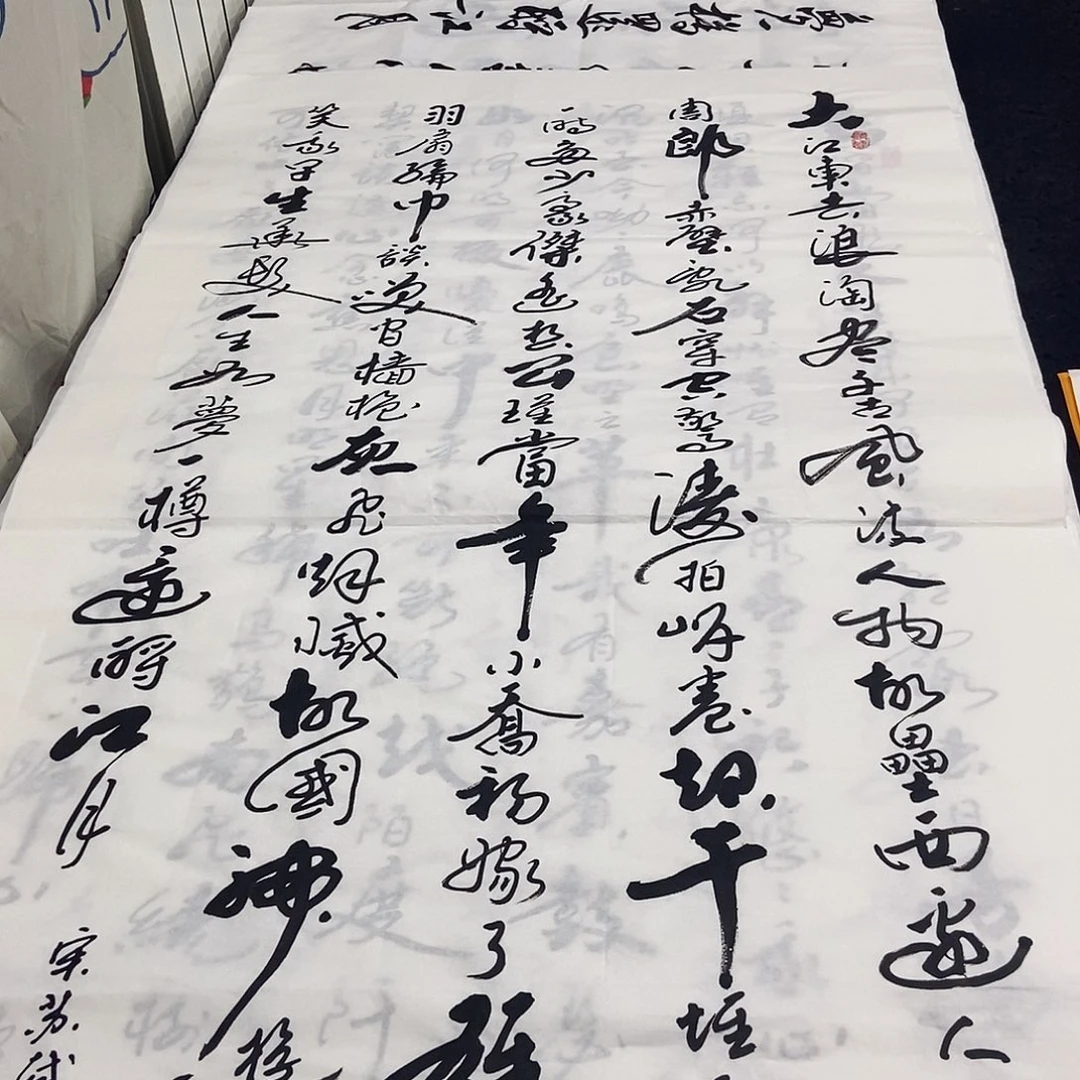 大江東去浪淘尽千古風流人物故壘西邊人
周郎赤壁亂石穿空驚濤拍岸卷起千堆
一時多少豪傑遙想公瑾當年小喬初嫁了雄
羽扇綸巾談笑間檣櫓灰飛烟滅故國神
笑我早生華髮人生如夢一樽還酹江月
宋苏